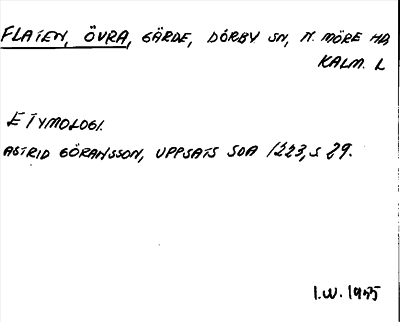 FLATEN, ÖVRA, GÄRDE, DÖRBY SN, N. MÖRE HD,
KALM. L
ETYMOLOGI.
ASTRID GÖRANSSON, UPPSATS SOA 1223, S 29.
I.W. 1975